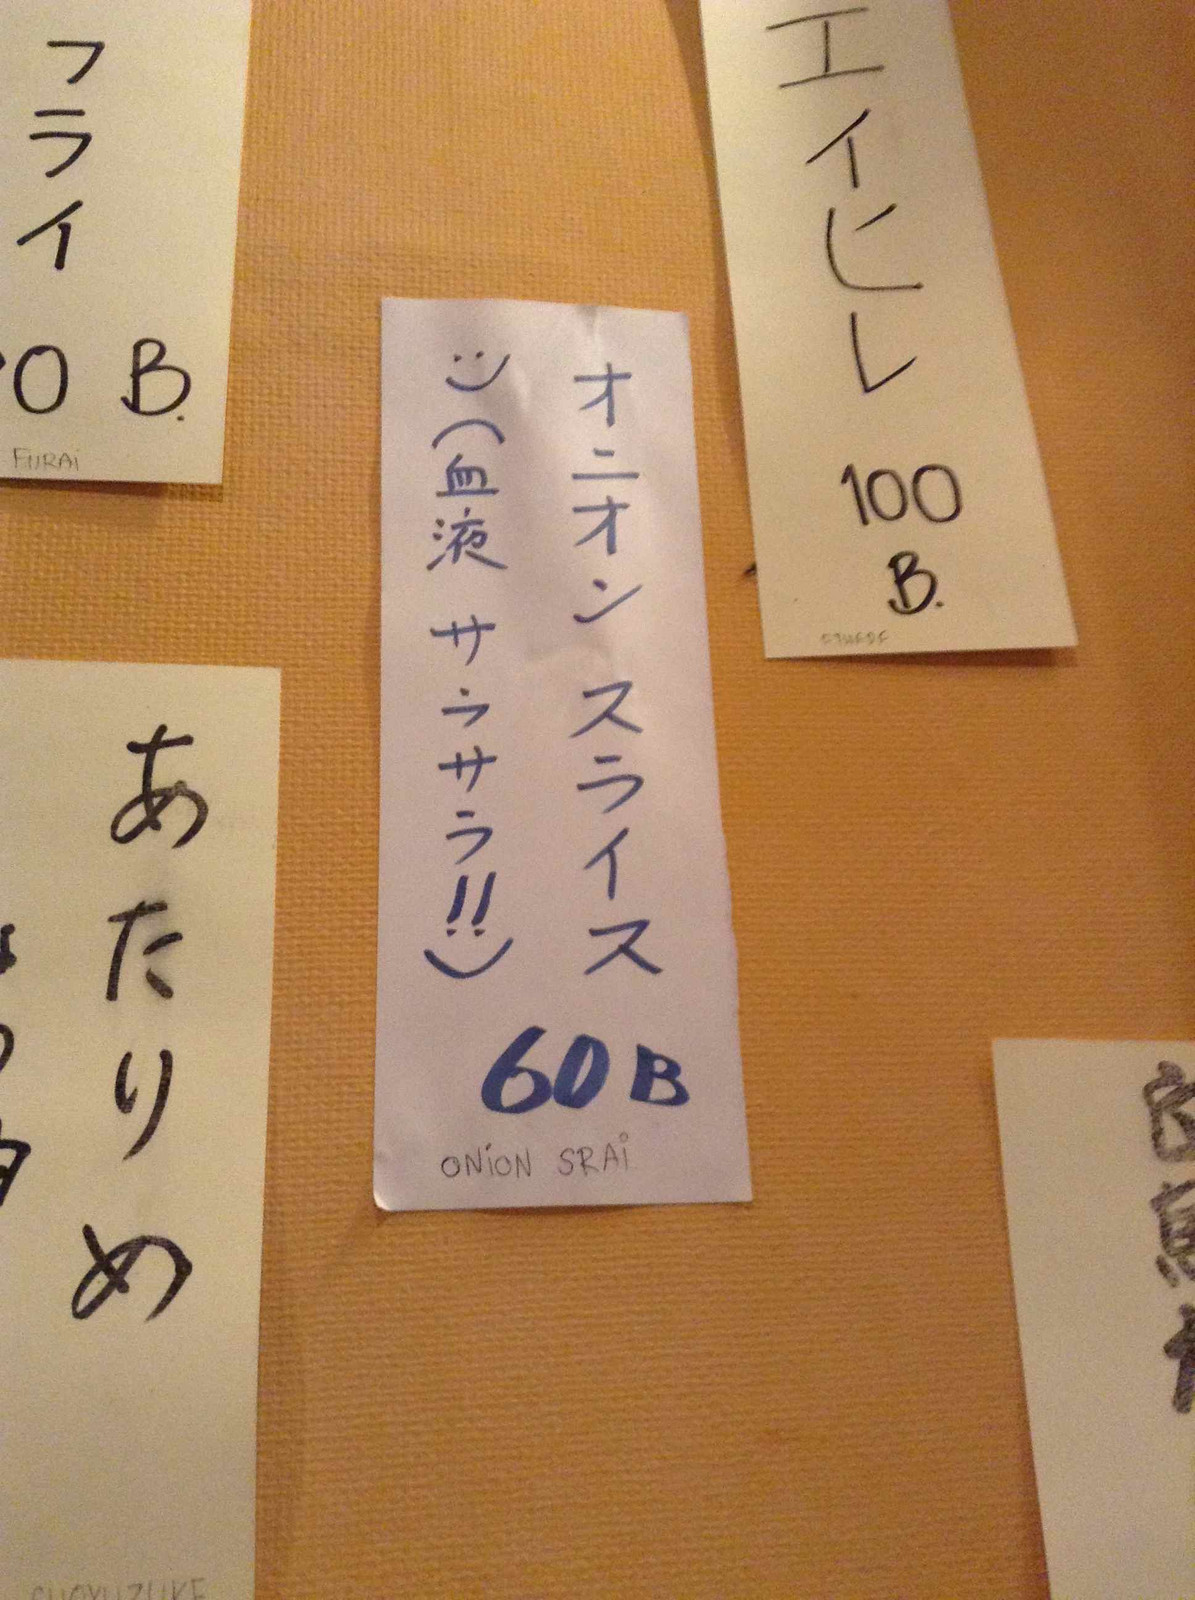 フライ
0 B.
FURAi
エイヒレ
100
B.
オニオンスライス
(血液 サラサラ!!)
60B
ONiON SRAi
あたりめ